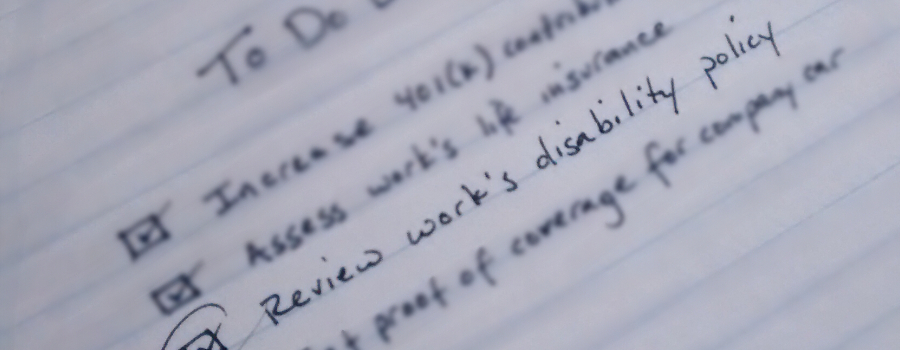 To Do
Increase 401(k)
Assess work's life insurance
Review work's disability policy
proof of coverage for company car